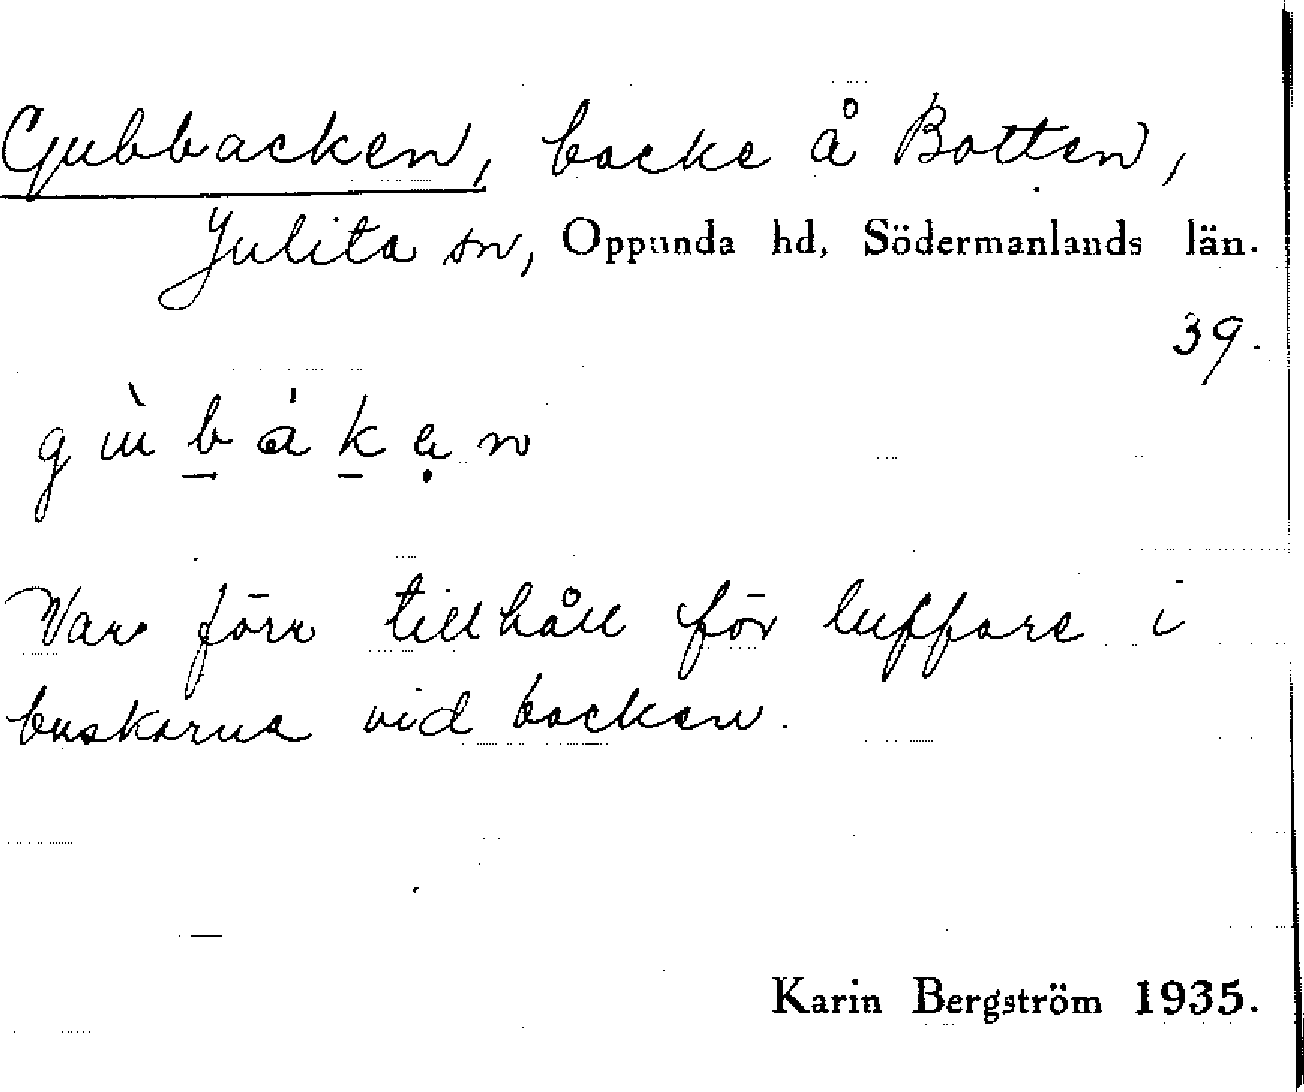 Gubbacken, backe å Botten,
Julita sn, Oppunda hd, Södermanlands län.
39.
gùb̲ák̲ẹn
Var förr tillhåll för luffare i
buskarna vid backen.
Karin Bergström 1935.